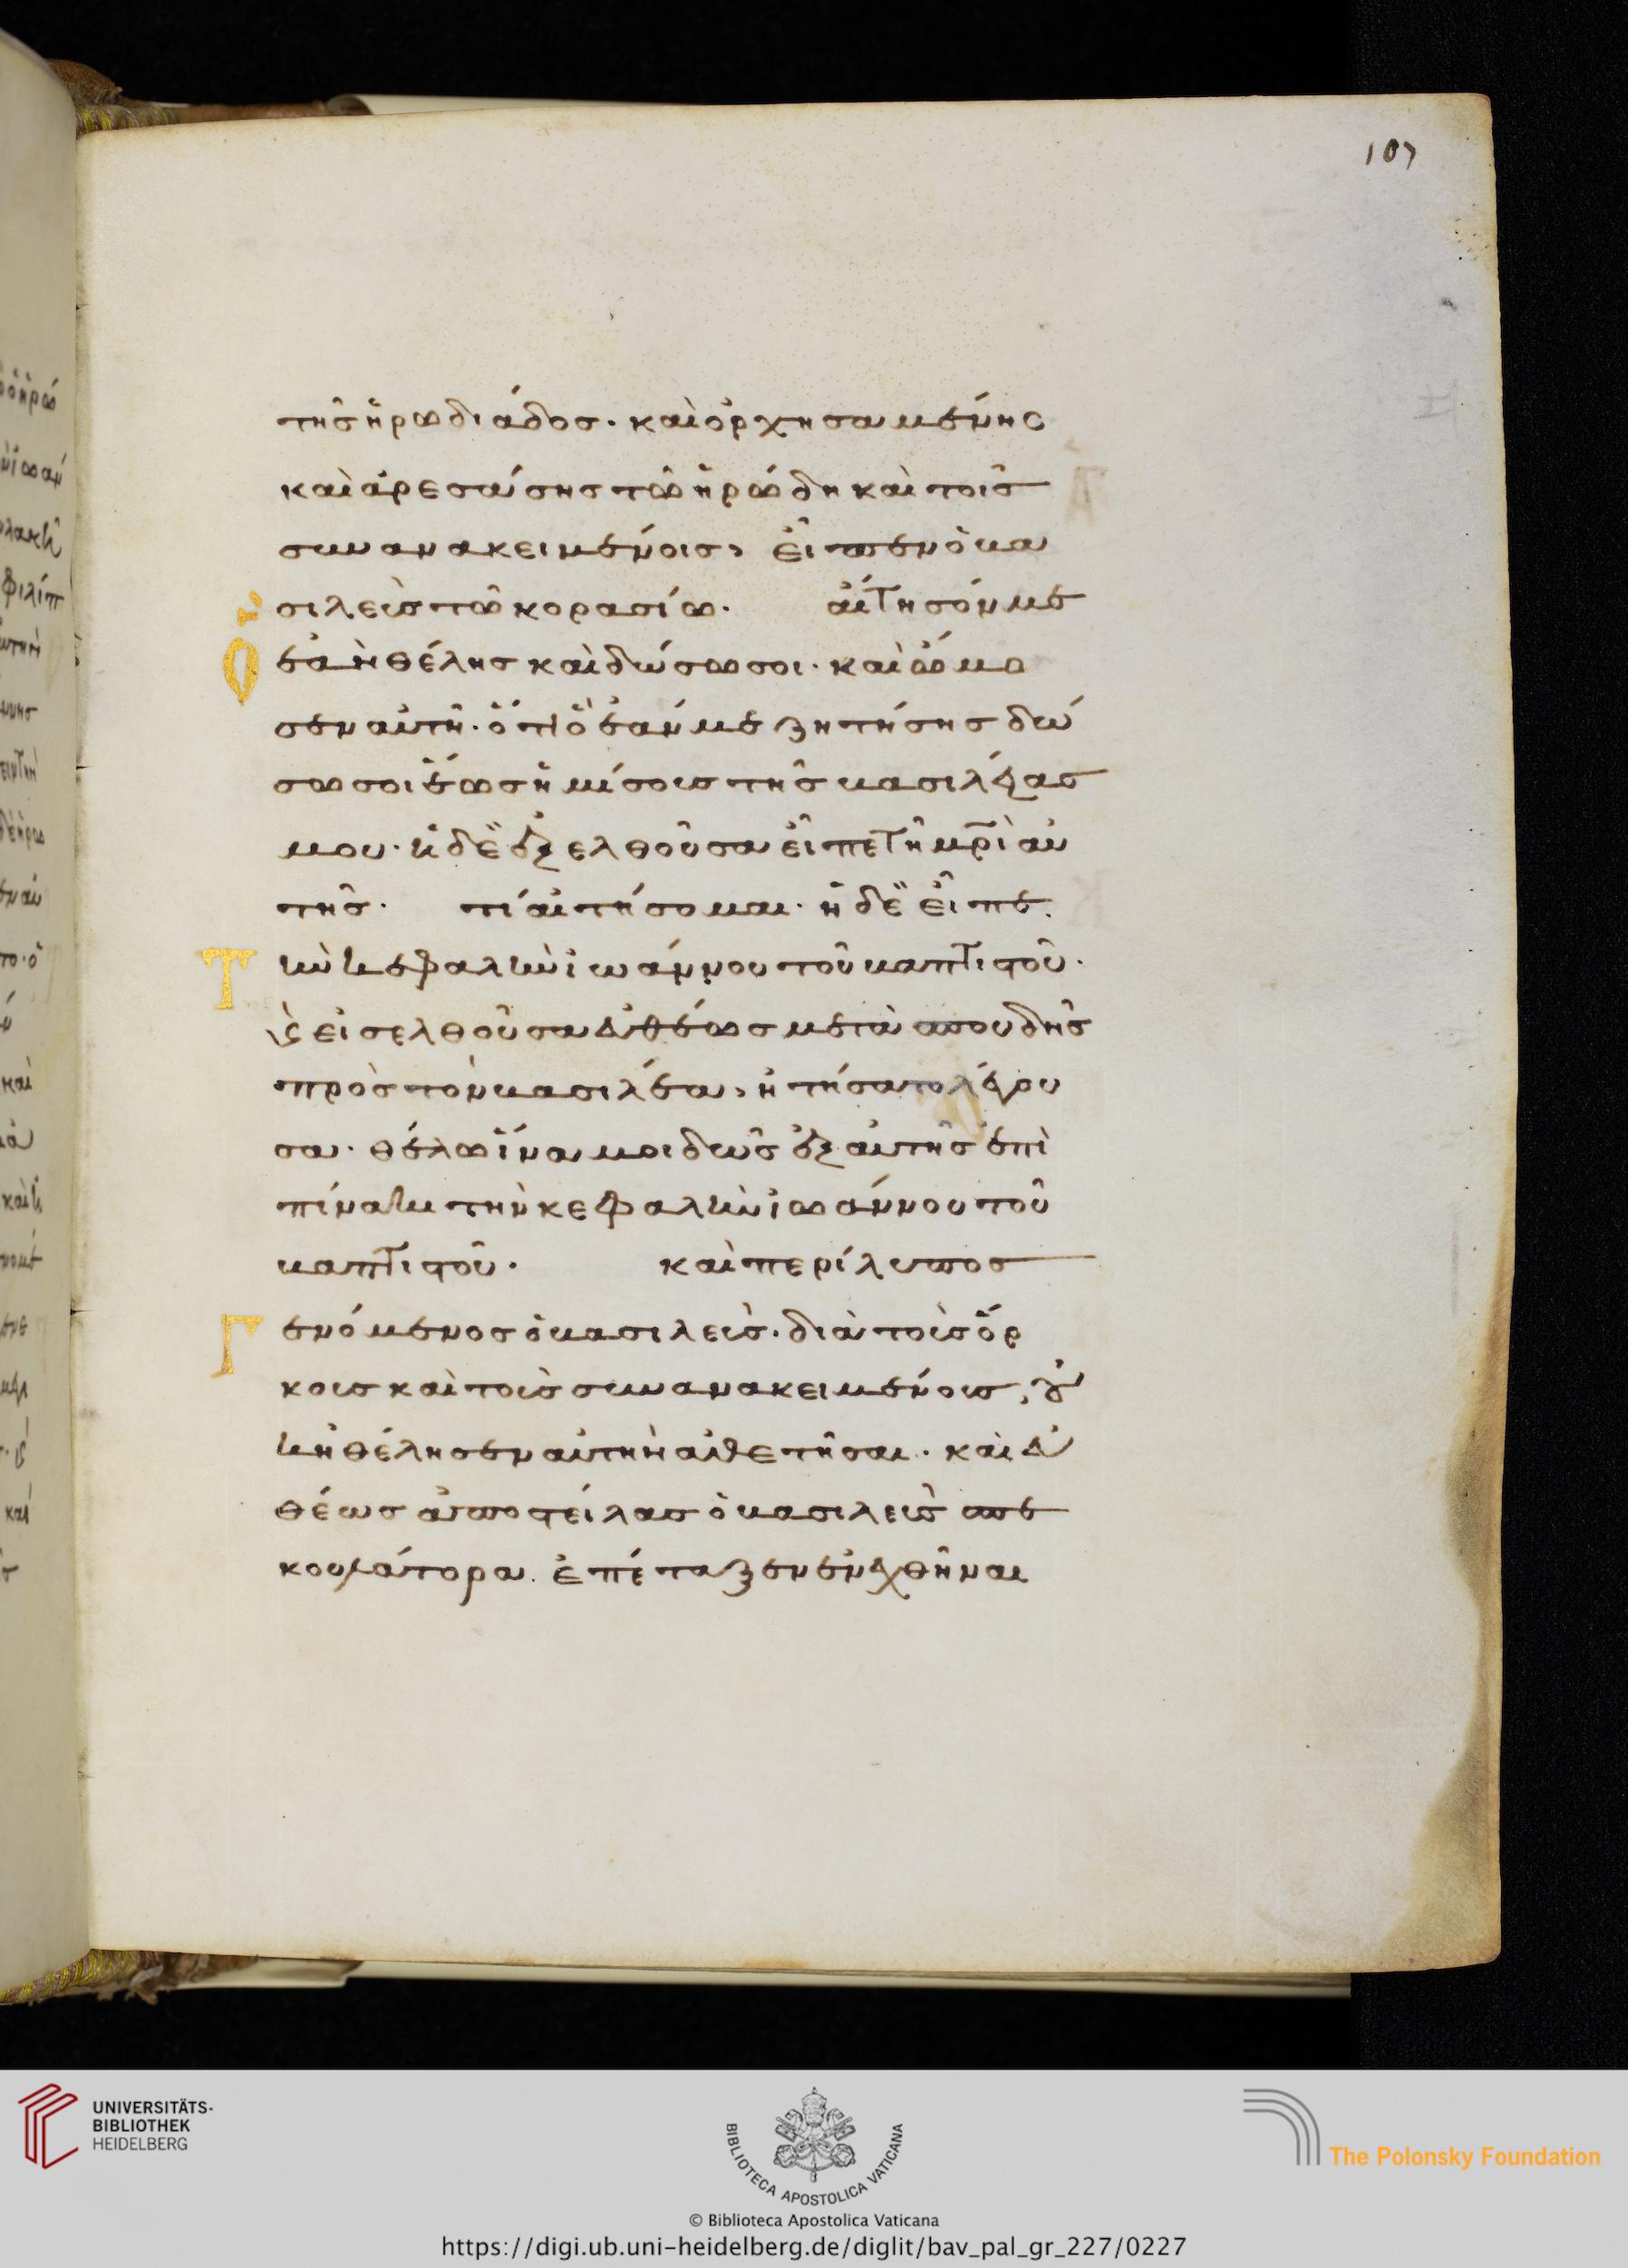 107
τῆς ἡρωδιάδος· καὶ ὀρχησαμένης
καὶ ἀρεσάσης τῶ ἡρώδη καὶ τοῖς
συνανακειμένοις, εἶπεν ὁ βα
σιλεὺς τῶ κορασίω· αἴτησόν με
Ὃ ἐὰν θέλης καὶ δώσω σοι· καὶ ὤμο
σεν αὐτῆ· ὅτι ὃ ἐάν με ζητήσης δώ
σω σοι ἕως ἡμίσους τῆς βασιλείας
μου· ἡ δὲ ἐξελθοῦσα εἶπε τῆ μρ̅ὶ αὐ
τῆς· τί αἰτήσομαι· ἡ δὲ εἶπε.
Τὴν κεφαλὴν ἰωάννου τοῦ βαπτιστοῦ·
ϗ εἰσελθοῦσα εὐθέως μετὰ σπουδῆς
πρὸς τὸν βασιλέα, ἠτήσατο λέγου
σα· θέλω ἵνα μοι δῶς ἐξ αὐτῆς ἐπὶ
πίνακι τὴν κεφαλὴν ἰωάννου τοῦ
βαπτιστοῦ· καὶ περίλυπος
Γενόμενος ὁ βασιλεὺς· διὰ τοὺς ὅρ
κους καὶ τοὺς συνανακειμένους, οὐ
κ ἠθέλησεν αὐτὴν ἀθετῆσαι· καὶ εὐ
θέως ἀποστείλας ὁ βασιλεὺς σπε
κουλάτορα. ἐπέταξεν ἐνεχθῆναι
UNIVERSITÄTS-
BIBLIOTHEK
HEIDELBERG
BIBLIOTECA APOSTOLICA VATICANA
The Polonsky Foundation
© Biblioteca Apostolica Vaticana
https://digi.ub.uni-heidelberg.de/diglit/bav_pal_gr_227/0227